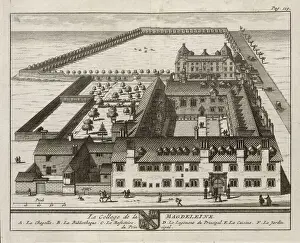 Pag. 119.
La College de la MAGDELEINE
A. La Chapelle. B. La Bibliotheque. C. Le Refectoire D. Le Logement du Principal. E. La Cuisine. F. Le Jardin
du Prin cipal.